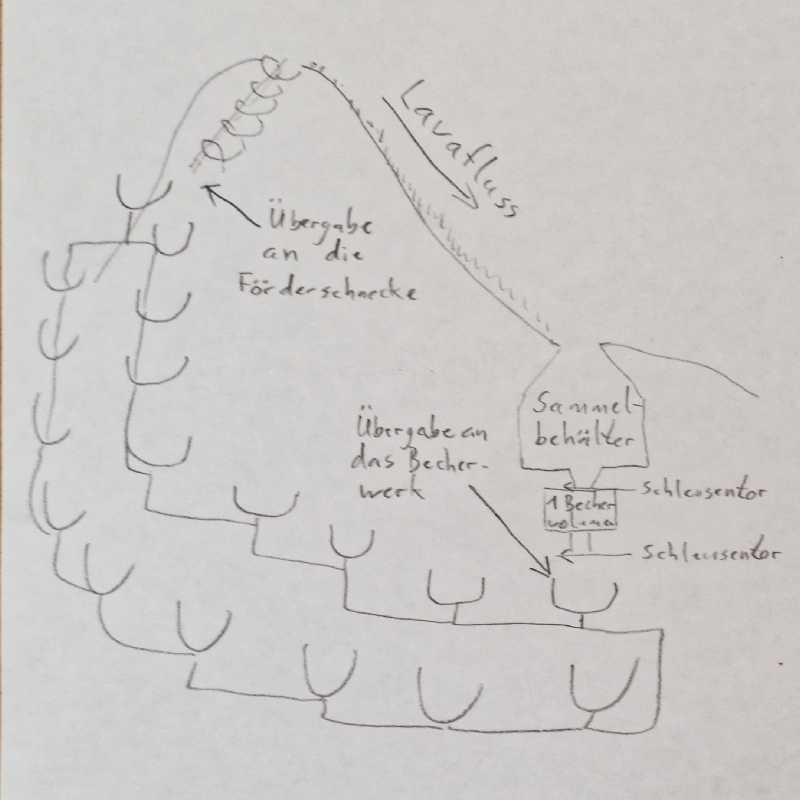 Lavafluss
Übergabe
an die
Förderschnecke
Sammel-
behälter
Übergabe an
das Becher-
werk
Schleusentor
1 Becher
volumen
Schleusentor